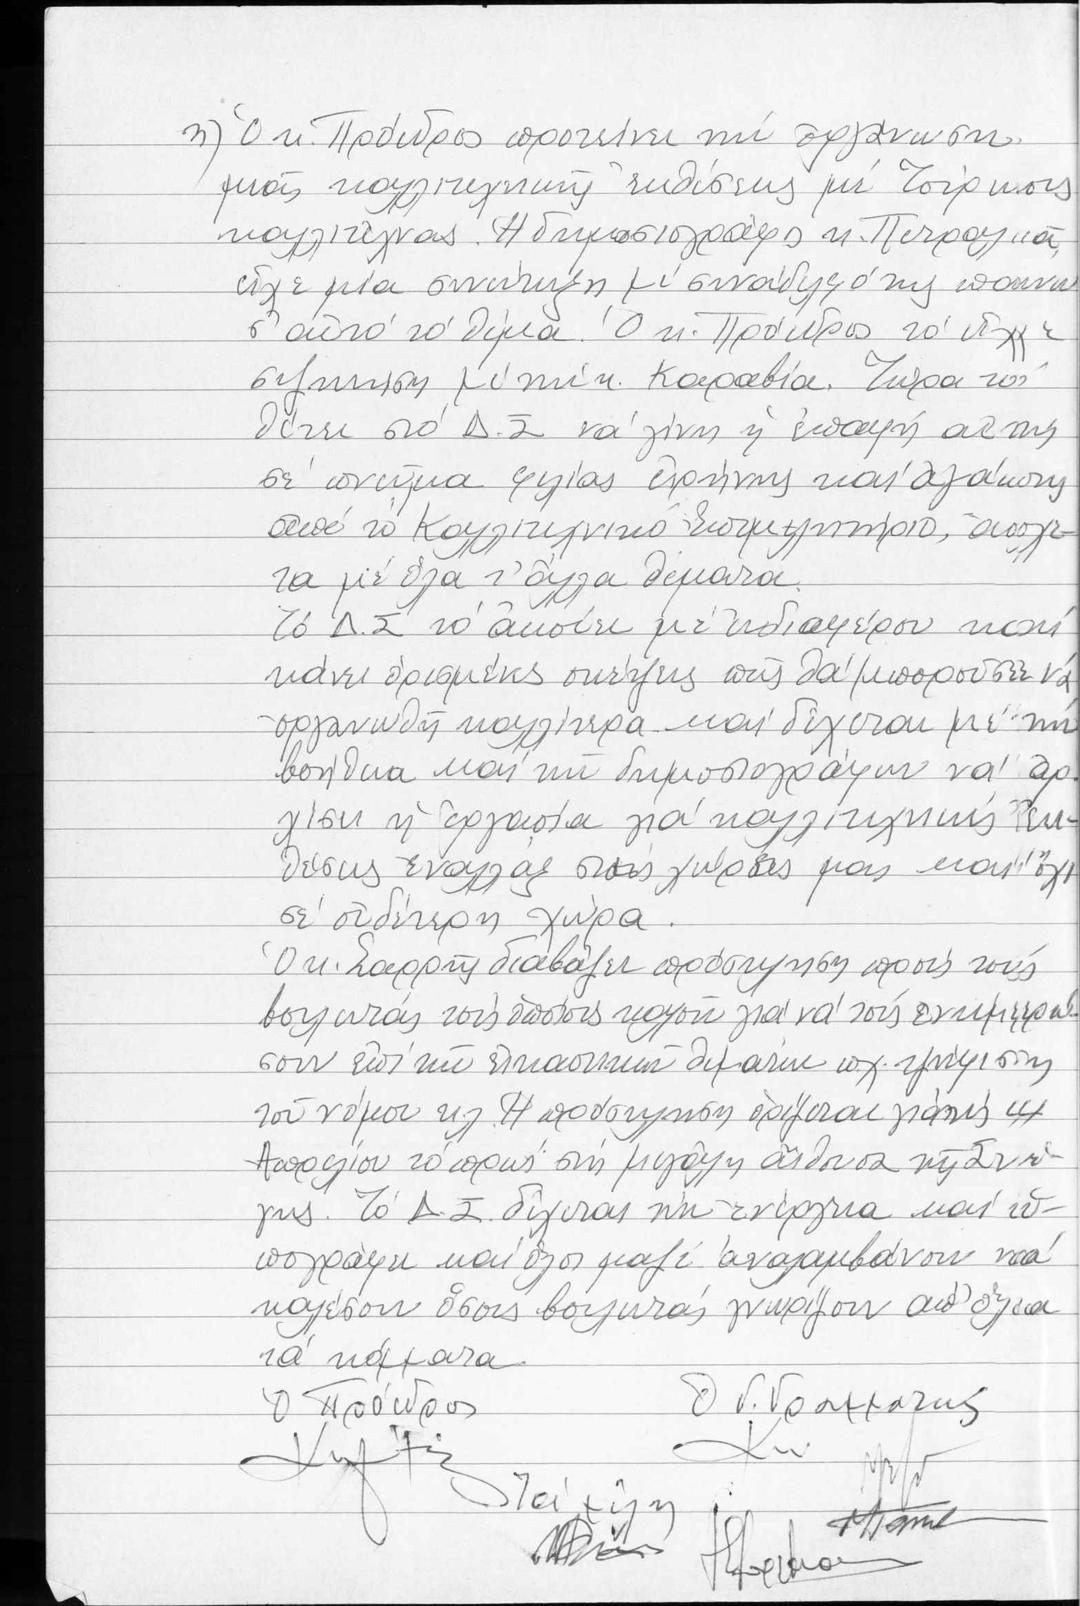 η) Ὁ κ. Πρόεδρος προτείνει τήν ὀργάνωση
μιᾶς καλλιτεχνικῆς ἐκθέσεως μέ Τούρκους
καλλιτέχνας. Ἡ δημοσιογράφος κ.
εἶχε μία συνέντευξη μέ συνάδελφό της ἐπάνω
σ' αὐτό τό θέμα. Ὁ κ. Πρόεδρος τό εἶχε
συζητήσει μέ τήν κ. Καραβία. Τώρα τό
θέτει στό Δ.Σ νά γίνη ἡ ἐπαφή αὐτή
σέ πνεῦμα φιλίας εἰρήνης καί ἀγάπης
ἀπό τό Καλλιτεχνικό Ἐπιμελητήριο, ἄσχε-
τα μέ ὅλα τ' ἄλλα θέματα.
Τό Δ.Σ τό ἀκούει μέ ἐνδιαφέρον καί
κάνει ὁρισμένες σκέψεις πῶς θά μποροῦσε νά
ὀργανωθῆ καλλίτερα καί δέχεται μέ τήν
βοήθεια καί τῶν δημοσιογράφων νά ἀρ-
χίσει ἡ ἐργασία γιά καλλιτεχνικές ἐκ-
θέσεις ἐναλλάξ στίς χῶρες μας καί ὄχι
σέ οὐδέτερη χώρα.
Ὁ κ. Σαρρῆς διαβάζει πρόσκληση πρός τούς
βουλευτάς τούς ὁποίους καλοῦν γιά νά τούς ἐνημερώ-
σουν ἐπί τῶν εἰκαστικῶν θεμάτων πχ. ψήφιση
τοῦ νόμου κλ. Ἡ πρόσκληση ὁρίζεται γιά τίς 4
Ἀπριλίου τό πρωί στή μεγάλη αἴθουσα τῆς Στέ-
γης. Τό Δ.Σ. δέχεται τήν ἐνέργεια καί ὑ-
πογράφει καί ὅλοι μαζί ἀναλαμβάνουν νά
καλέσουν ὅσους βουλευτάς γνωρίζουν ἀπ' ὅλα
τά κόμματα.
Ὁ Πρόεδρος Ὁ Γ. Γραμματεύς
Τά μέλη